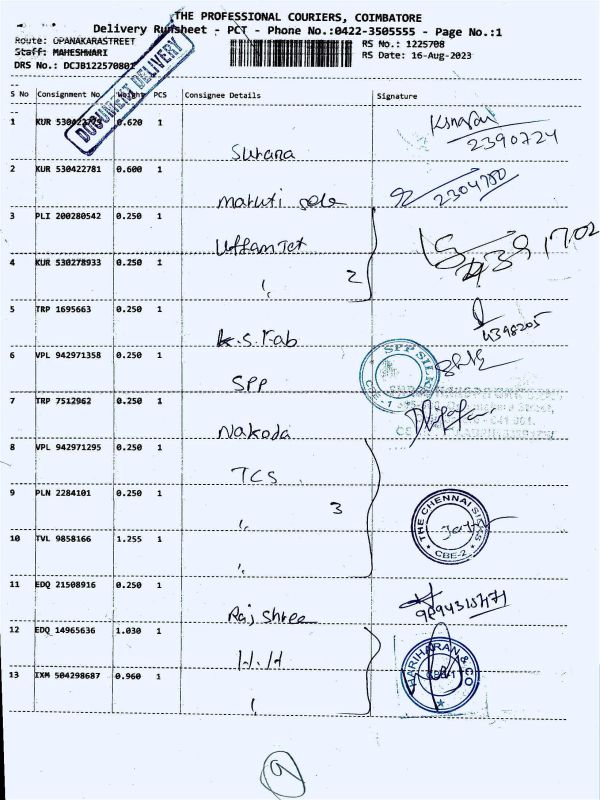 THE PROFESSIONAL COURIERS, COIMBATORE
Delivery Runsheet - PCT - Phone No.:0422-3505555 - Page No.:1
Route: OPANAKARASTREET
RS No.: 1225708
Staff: MAHESHWARI
RS Date: 16-Aug-2023
DRS No.: DCJB122570801
DOCUMENT DELIVERY
S No Consignment No. Weight PCS Consignee Details Signature
1 KUR 0.620 1
Surana
2390724
2 KUR 530422781 0.600 1
maruti sele
2304750
3 PLI 200280542 0.250 1
4 KUR 530278933 0.250 1
" 2
5 TRP 1695663 0.250 1
K.S. Fab
4398205
6 VPL 942971358 0.250 1
SPP
SPP SILK
CBE - 1
7 TRP 7512962 0.250 1
Nakoda
8 VPL 942971295 0.250 1
TCS
9 PLN 2284101 0.250 1
" 3
THE CHENNAI SILKS
CBE-2
10 TVL 9858166 1.255 1
"
11 EDQ 21508916 0.250 1
Raj Shree
12 EDQ 14965636 1.030 1
H.H
HARIHARAN & CO
CBE-1
13 IXM 504298687 0.960 1
"
9